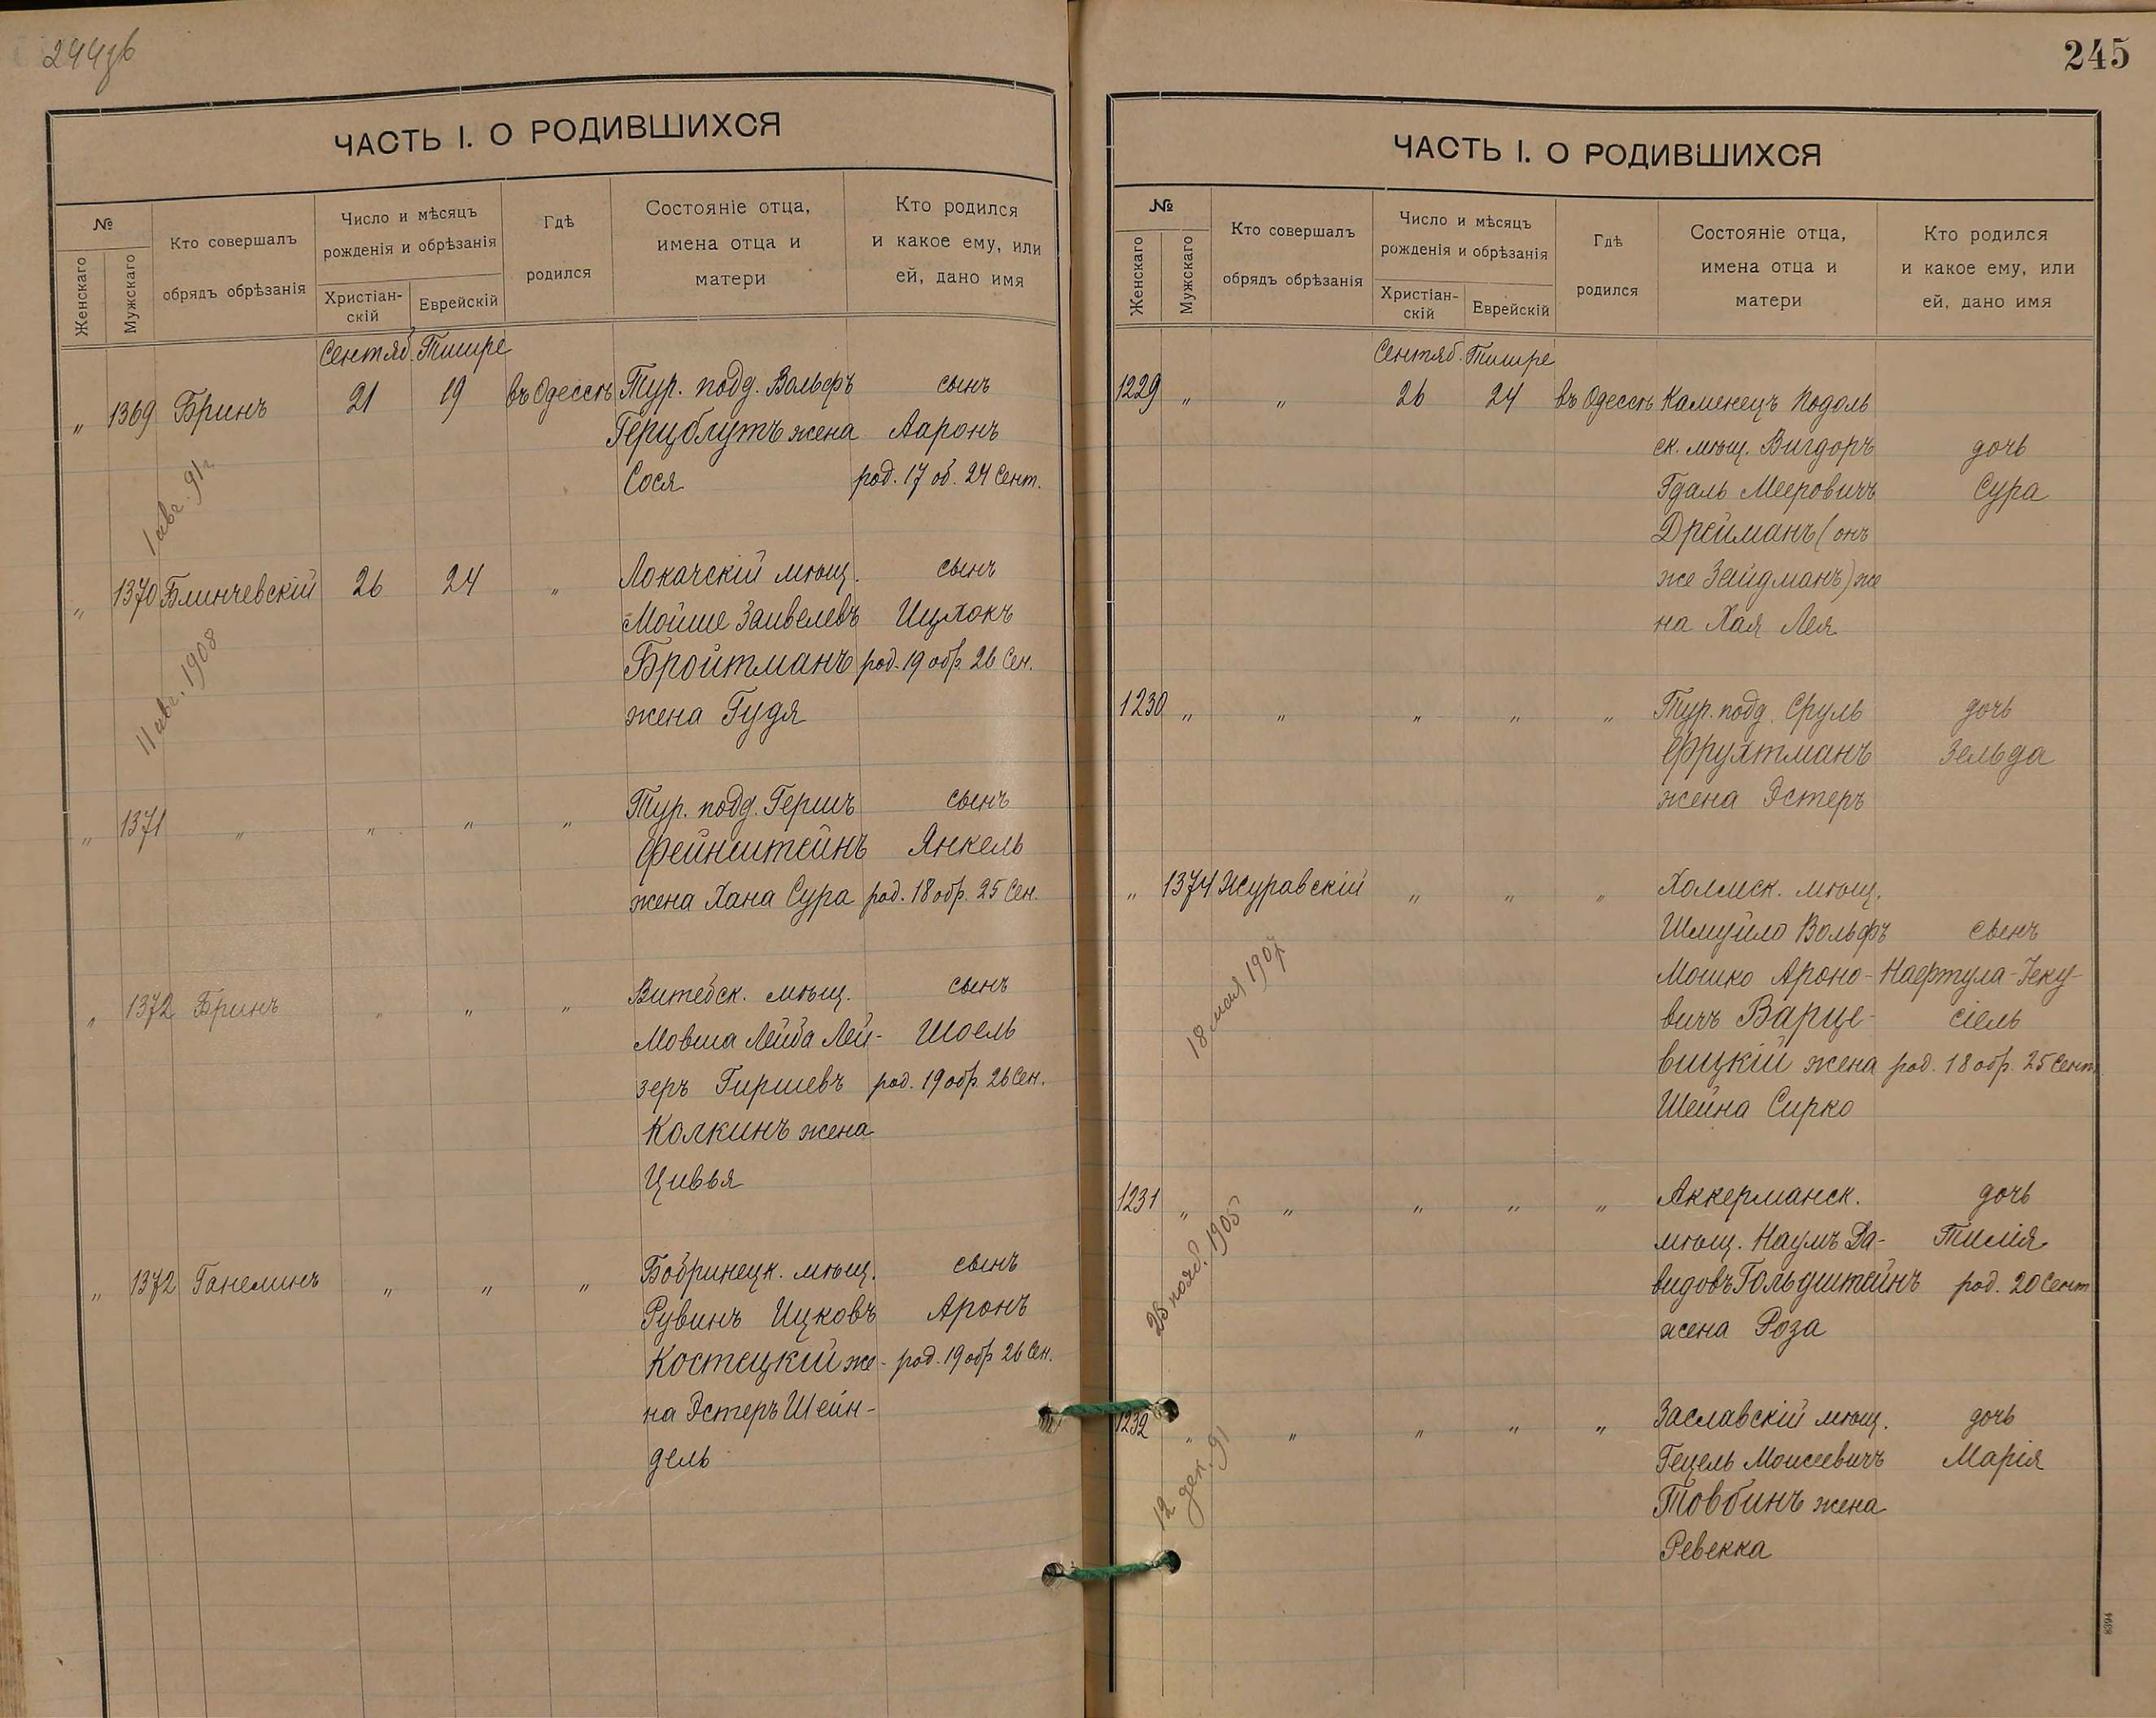 244об
ЧАСТЬ I. О РОДИВШИХСЯ
№
Женскаго
Мужскаго
Кто совершалъ
обрядъ обрѣзанія
Число и мѣсяцъ
рожденія и обрѣзанія
Христіан-
скій
Еврейскій
Гдѣ
родился
Состояніе отца,
имена отца и
матери
Кто родился
и какое ему, или
ей, дано имя
Сентяб. Тишре
" 1369 Бринъ 21 19 въ Одессѣ Тур. подд. Вольфъ сынъ
Герцблутъ жена Ааронъ
Сося род. 17 об. 24 Сент.
1 авг. 91 г
" 1370 Блинчевскій 26 24 " Локачскій мѣщ. сынъ
Мойше Заивелевъ Ицхокъ
Бройтманъ род. 19 обр. 26 Сен.
жена Гудя
11 авг. 1908
" 1371 " " " " Тур. подд. Гершъ сынъ
Фейнштейнъ Янкель
жена Хана Сура род. 18 обр. 25 Сен.
" 1372 Бринъ " " " Витебск. мѣщ. сынъ
Мовша Лейба Лей- Шоель
зеръ Гиршевъ род. 19 обр. 26 Сен.
Колкинъ жена
Цивья
" 1372 Ганелинъ " " " Бобринецк. мѣщ. сынъ
Рувинъ Ицковъ Аронъ
Костецкій же- род. 19 обр 26 Сен.
на Эстеръ Шейн-
дель
245
ЧАСТЬ I. О РОДИВШИХСЯ
№
Женскаго
Мужскаго
Кто совершалъ
обрядъ обрѣзанія
Число и мѣсяцъ
рожденія и обрѣзанія
Христіан-
скій
Еврейскій
Гдѣ
родился
Состояніе отца,
имена отца и
матери
Кто родился
и какое ему, или
ей, дано имя
Сентяб. Тишре
1229 " " 26 24 въ Одессѣ Каменецъ Подоль
ск. мѣщ. Вигдоръ дочь
Гдаль Мееровичъ Сура
Дрейманъ (онъ
же Зейдманъ) же
на Хая Лея
1230 " " " " " Тур. подд. Сруль дочь
Фрухтманъ Зельда
жена Эстеръ
" 1374 Журавскій " " " Холмск. мѣщ.
Шмуйло Вольфъ сынъ
Мошко Ароно- Нафтула-Іеку-
вичъ Варце- сіель
вицкій жена род. 18 обр. 25 Сент
Шейна Сирко
18 мая 1907
1231 " " " " " Аккерманск. дочь
мѣщ. Наумъ Да- Тилія
видовъ Гольдштейнъ род. 20 Сент
жена Роза
25 нояб. 1905
1232 " " " " " Заславскій мѣщ. дочь
Гецель Моисеевичъ Марія
Товбинъ жена
Ревекка
12 дек. 91
8394